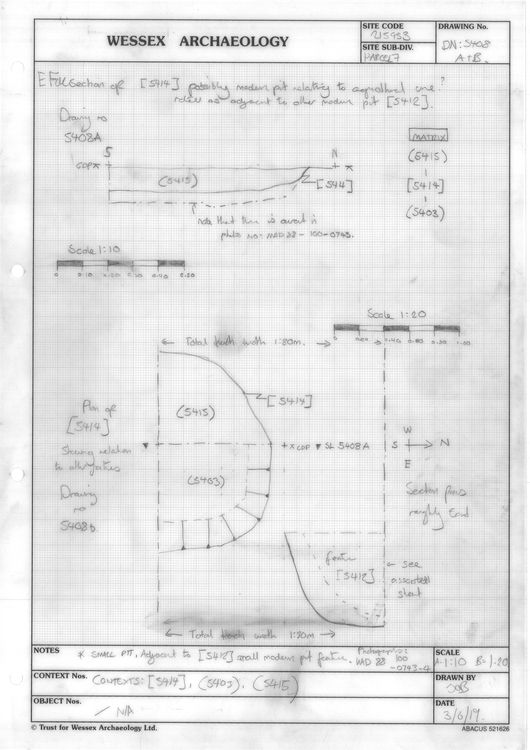 WESSEX ARCHAEOLOGY
SITE CODE
215953
SITE SUB-DIV.
PARCEL 7
DRAWING No.
DN: 5408
A + B.
E F section of [5414] possibly modern pit relating to agricultural use?
adjacent to other modern pit [5412].
Drawing no
5408A
MATRIX
(5415)
[5414]
(5403)
S
N
GDP
(5415)
[544]
note that there is
photo no: WAD 88 - 100-0743.
Scale 1:10
0 0.10 0.20 0.30 0.40 0.50
Scale 1:20
0 0.20 0.40 0.60 0.80 1.00
← Total width 1:80m. →
[5414]
(5415)
Plan of
[5414]
Showing relation
to other features
+ x GDP ▼ SL 5408A
W
S N
E
(5403)
Drawing
no
5408b
Section faces
roughly East
feature
[5412]
← see
associated
sheet
← Total width 1:80m →
NOTES
* SMALL PIT, Adjacent to [5412] small modern pit feature.
Photographs:
WAD 88 100
-0743-4
SCALE
A-1:10 B=1:20
CONTEXT Nos.
CONTEXTS: [5414], (5403), (5415)
DRAWN BY
OBJECT No.
/ N/A
DATE
3/6/19.
© Trust for Wessex Archaeology Ltd.
ABACUS 521626